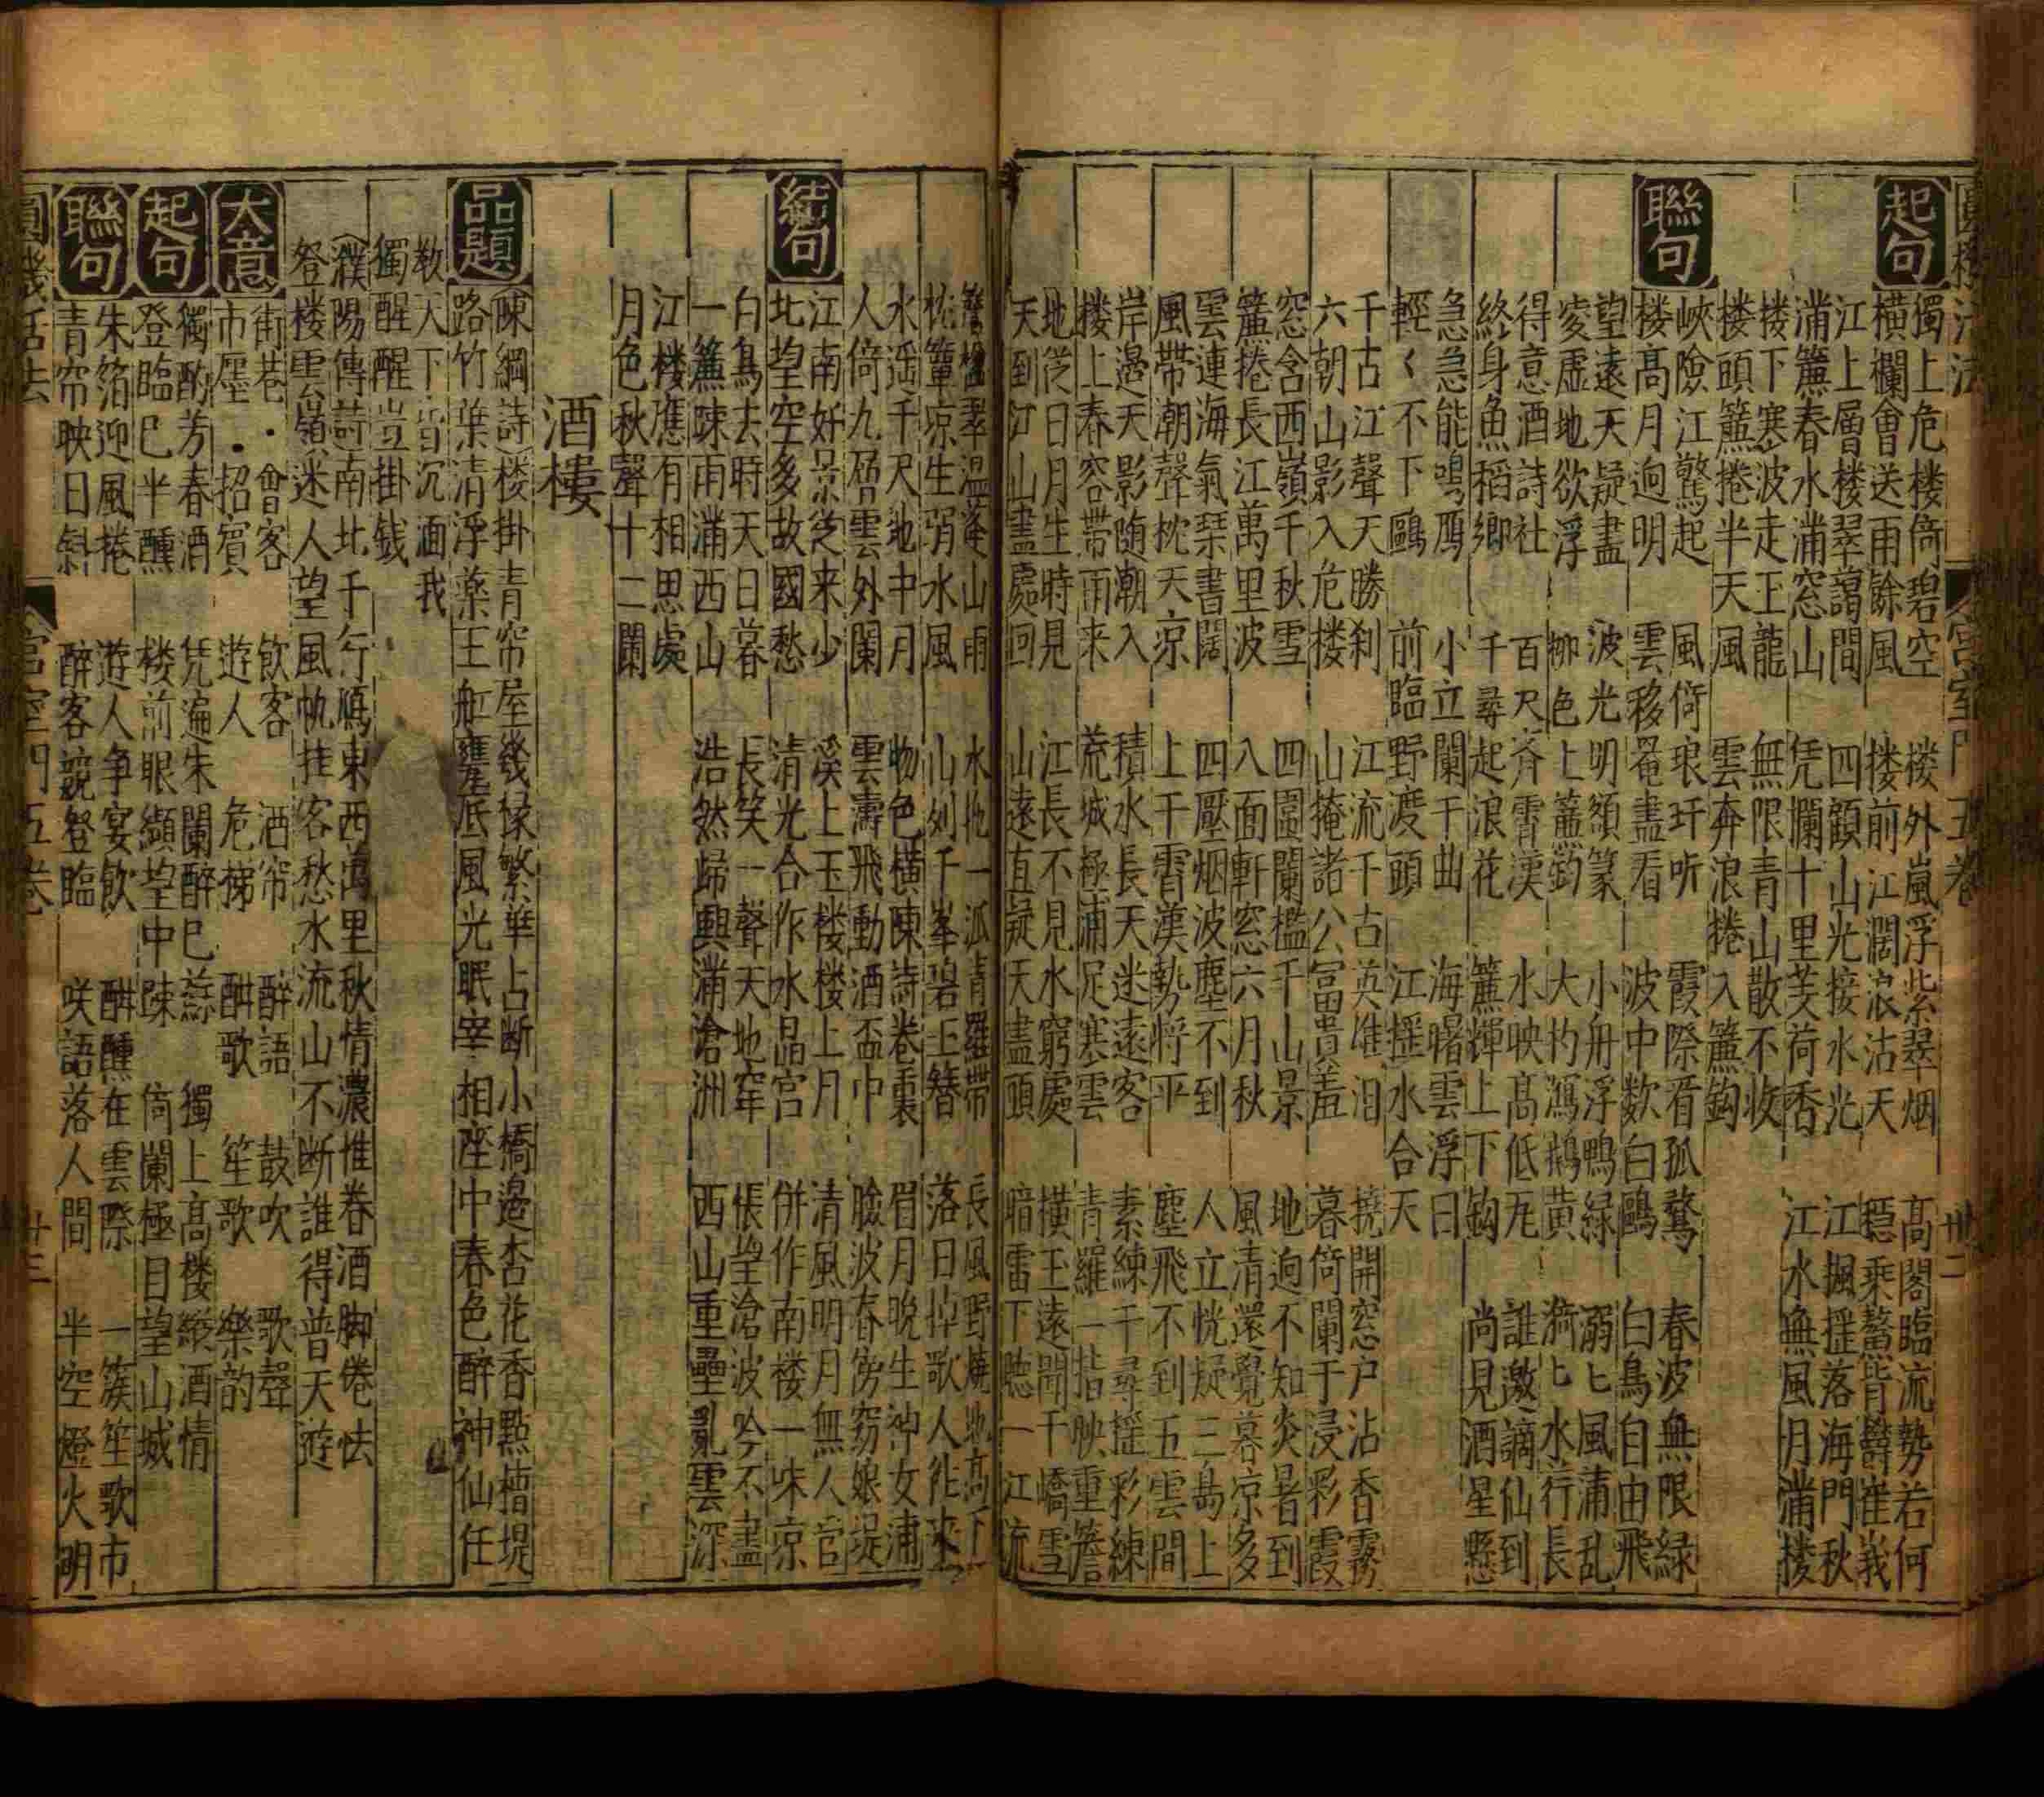 圓機活法 宮室門五卷 卅二
起句 獨上危楼倚碧空 楼外嵐浮紫翠烟 髙閣臨流勢若何
横欄會送雨餘風 楼前江濶浪沽天 穏乘鰲背欝崔峩
江上層楼翠靄間 四顧山光接水光 江楓揺落海門秋
满簾春水满窓山 凭欄十里芰荷香 江水無風月满楼
楼下寒波走玉龍 無限青山散不收
楼頭簾捲半天風 雲奔浪捲入簾鈎
聯句 峽險江驚起 風倚琅玕听 霞際看孤鶩 春波無限緑
楼髙月逈明 雲移罨畫看 波中数白鷗 白鳥自由飛
望遠天疑盡 波光明額篆 小舟浮鴨緑 溺匕風蒲乱
凌虚地欲浮 柳色上簾鈎 大杓瀉鵝黄 漪匕水行長
得意酒詩社 百尺齊霄漢 水映髙低瓦 誰邀謫仙到
終身魚稻郷 千尋起浪花 簾輝上下鈎 尚見酒星懸
急急能鳴鴈 小立闌干曲 海曙雲浮日
輕〻不下鷗 前臨野渡頭 江揺水合天
千古江聲天勝刹 江流千古英雄泪 撓開窓户沾香霧
六朝山影入危楼 山掩諸公冨貴羞 暮倚闌干浸彩霞
窓含西嶺千秋雪 四園闌檻千山景 地逈不知炎暑到
簾捲長江萬里波 八面軒窓六月秋 風清還覺暮凉多
雲連海氣琴書闊 四壓烟波塵不到 人立恍疑三島上
風帶潮聲枕天凉 上干霄漢勢将平 塵飛不到五雲間
岸邉天影随潮入 積水長天迷遠客 素練千尋揺彩練
楼上春容帶雨来 荒城極浦足寒雲 青羅一指映重簷
地従日月生時見 江長不見水窮處 横玉遠聞千嶠雪
天到江山盡處回 山遠直疑天盡頭 暗雷下聴一江流
簷楹翠温菴山雨 水拖一派青羅帶 長風野燒地髙下
枕簟凉生弱水風 山列千峯碧玉簪 落日掉歌人徃来
水遥千尺地中月 物色横陳詩卷裏 眉月晚生神女浦
人倚九層雲外闌 雲濤飛動酒盃中 臉波春傍窈娘堤
結句 江南好景従来少 溪上玉楼楼上月 清風明月無人官
北望空多故國愁 清光合作水晶宮 併作南楼一味凉
白鳥去時天日暮 長笑一聲天地窄 悵望滄波吟不盡
一簾踈雨满西山 浩然歸興满滄洲 西山重疊乱雲深
江楼應有相思處
月色秋聲十二闌
酒樓
品題 （陳綱詩）楼掛青帘屋幾椽繁華占断小橋邉杏花香點糟堤
路竹葉清浮藥玉舡甕底風光眠宰相座中春色醉神仙任
教天下皆沉湎我
獨醒醒豈掛錢
（濮陽傳詩）南北千行鴈東西萬里秋情濃惟春酒脚倦怯
登楼雲嶺迷人望風帆挂客愁水流山不断誰得普天遊
大意 街巷・會客 飲客 酒帘 醉語 鼓吹 歌聲
市廛・招賓 遊人 危梯 酣歌 笙歌 樂韵
起句 獨酌芳春酒 凭遍朱闌醉巳蘇 獨上髙楼縱酒情
登臨巳半醺 楼前眼纈望中踈 倚闌極目望山城
聯句 朱箔迎風捲 遊人争宴飲 酣醺在雲際 一簇笙歌市
青帘映日斜 醉客競登臨 咲語落人間 半空燈火明
圓機活法 宮室門五卷 卅三